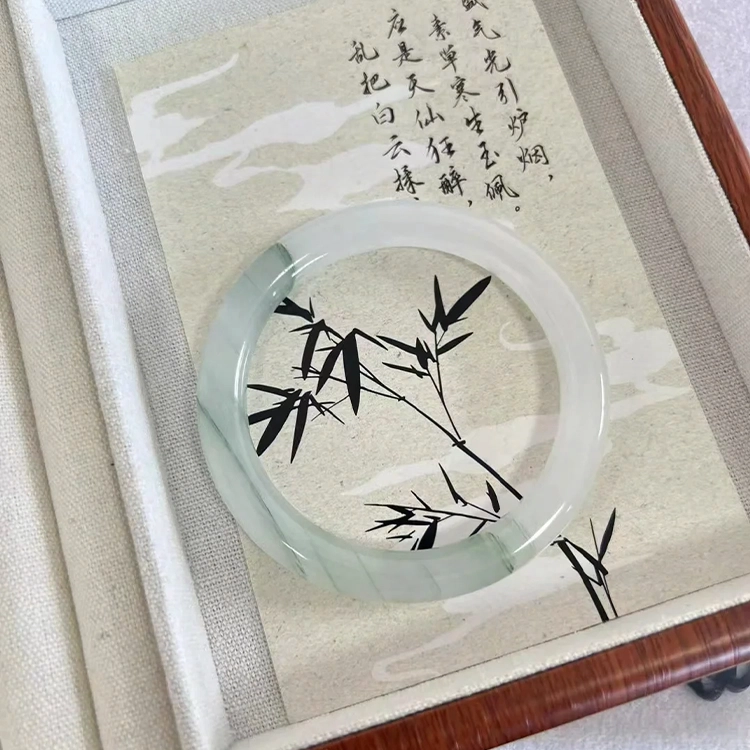 盛气光引炉烟，
素草寒生玉佩。
应是天仙狂醉，
乱把白云揉